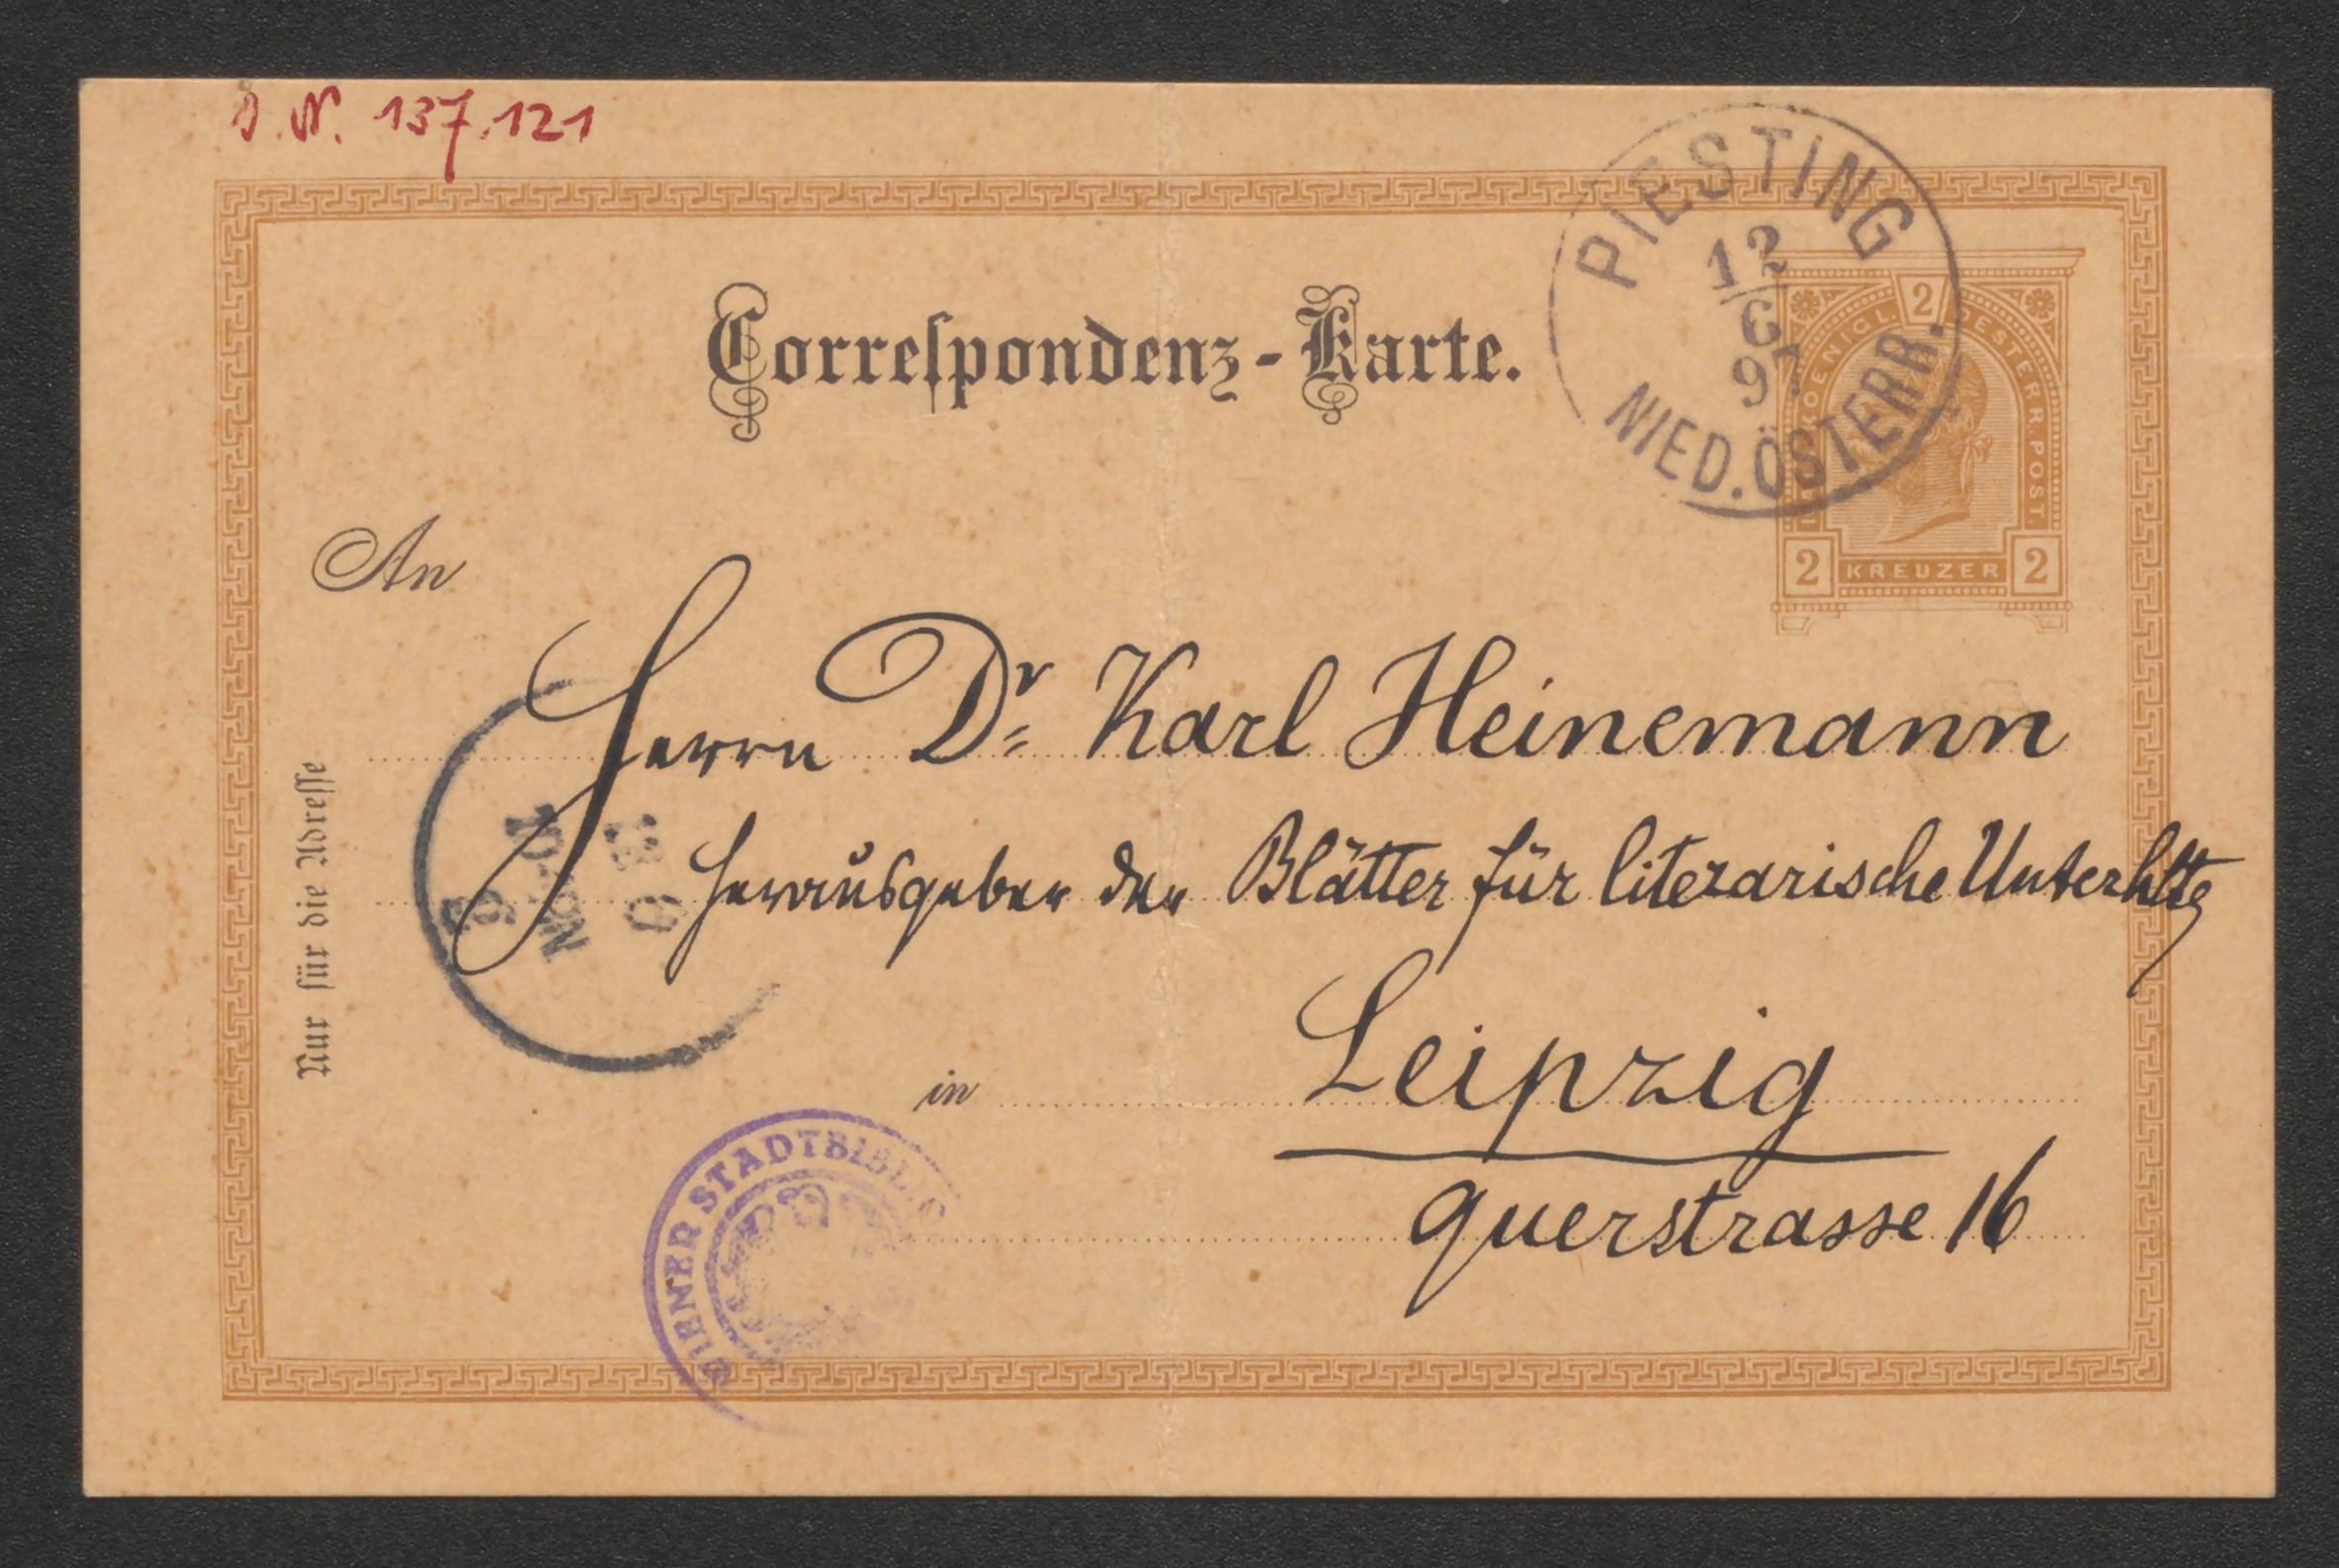 J. N. 137.121
PIESTING
12/6
97
NIED. ÖSTERR.
Correſpondenz-Karte.
2
KOENIGL. OESTERR POST.
2 KREUZER 2
An
Herrn Dr. Karl Heinemann
Herausgeber der Blätter für literarische Unterhltg
in Leipzig
Querstrasse 16
Nur für die Adreſſe
WIENER STADTBIBLIO